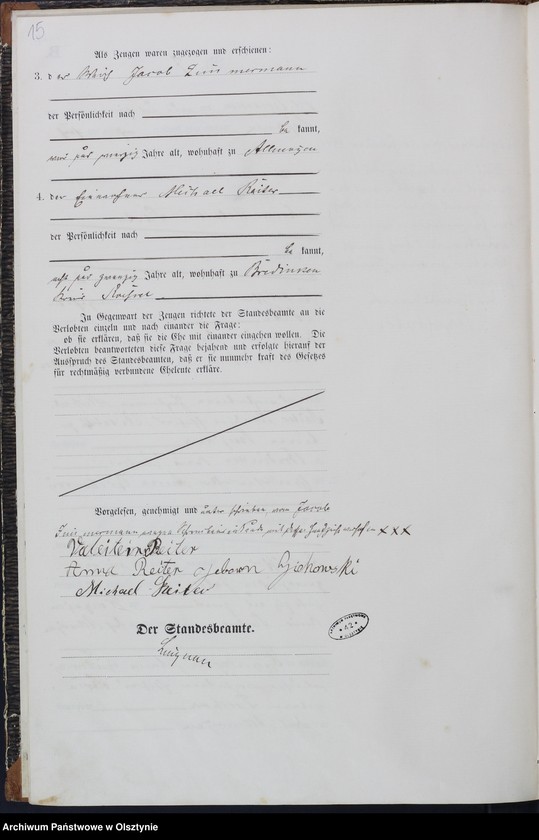 15
Als Zeugen waren zugezogen und erschienen:
3. der Jacob Zimmermann
der Persönlichkeit nach
be kannt,
und zwanzig Jahre alt, wohnhaft zu Allmoyen
4. der Einwohner Michael Reiter
der Persönlichkeit nach
be kannt,
acht und zwanzig Jahre alt, wohnhaft zu Bredinken
Kreis Roessel
In Gegenwart der Zeugen richtete der Standesbeamte an die
Verlobten einzeln und nach einander die Frage:
ob sie erklären, daß sie die Ehe mit einander eingehen wollen. Die
Verlobten beantworteten diese Frage bejahend und erfolgte hierauf der
Ausspruch des Standesbeamten, daß er sie nunmehr kraft des Gesetzes
für rechtmäßig verbundene Eheleute erkläre.
Vorgelesen, genehmigt und unterschrieben von Jacob
Zimmermann wegen Schreibensunkunde mit Handzeichen versehen xxx
Reiter
Anna Reiter geborn
Michael Reiter
Der Standesbeamte.
Archiwum Państwowe w Olsztynie